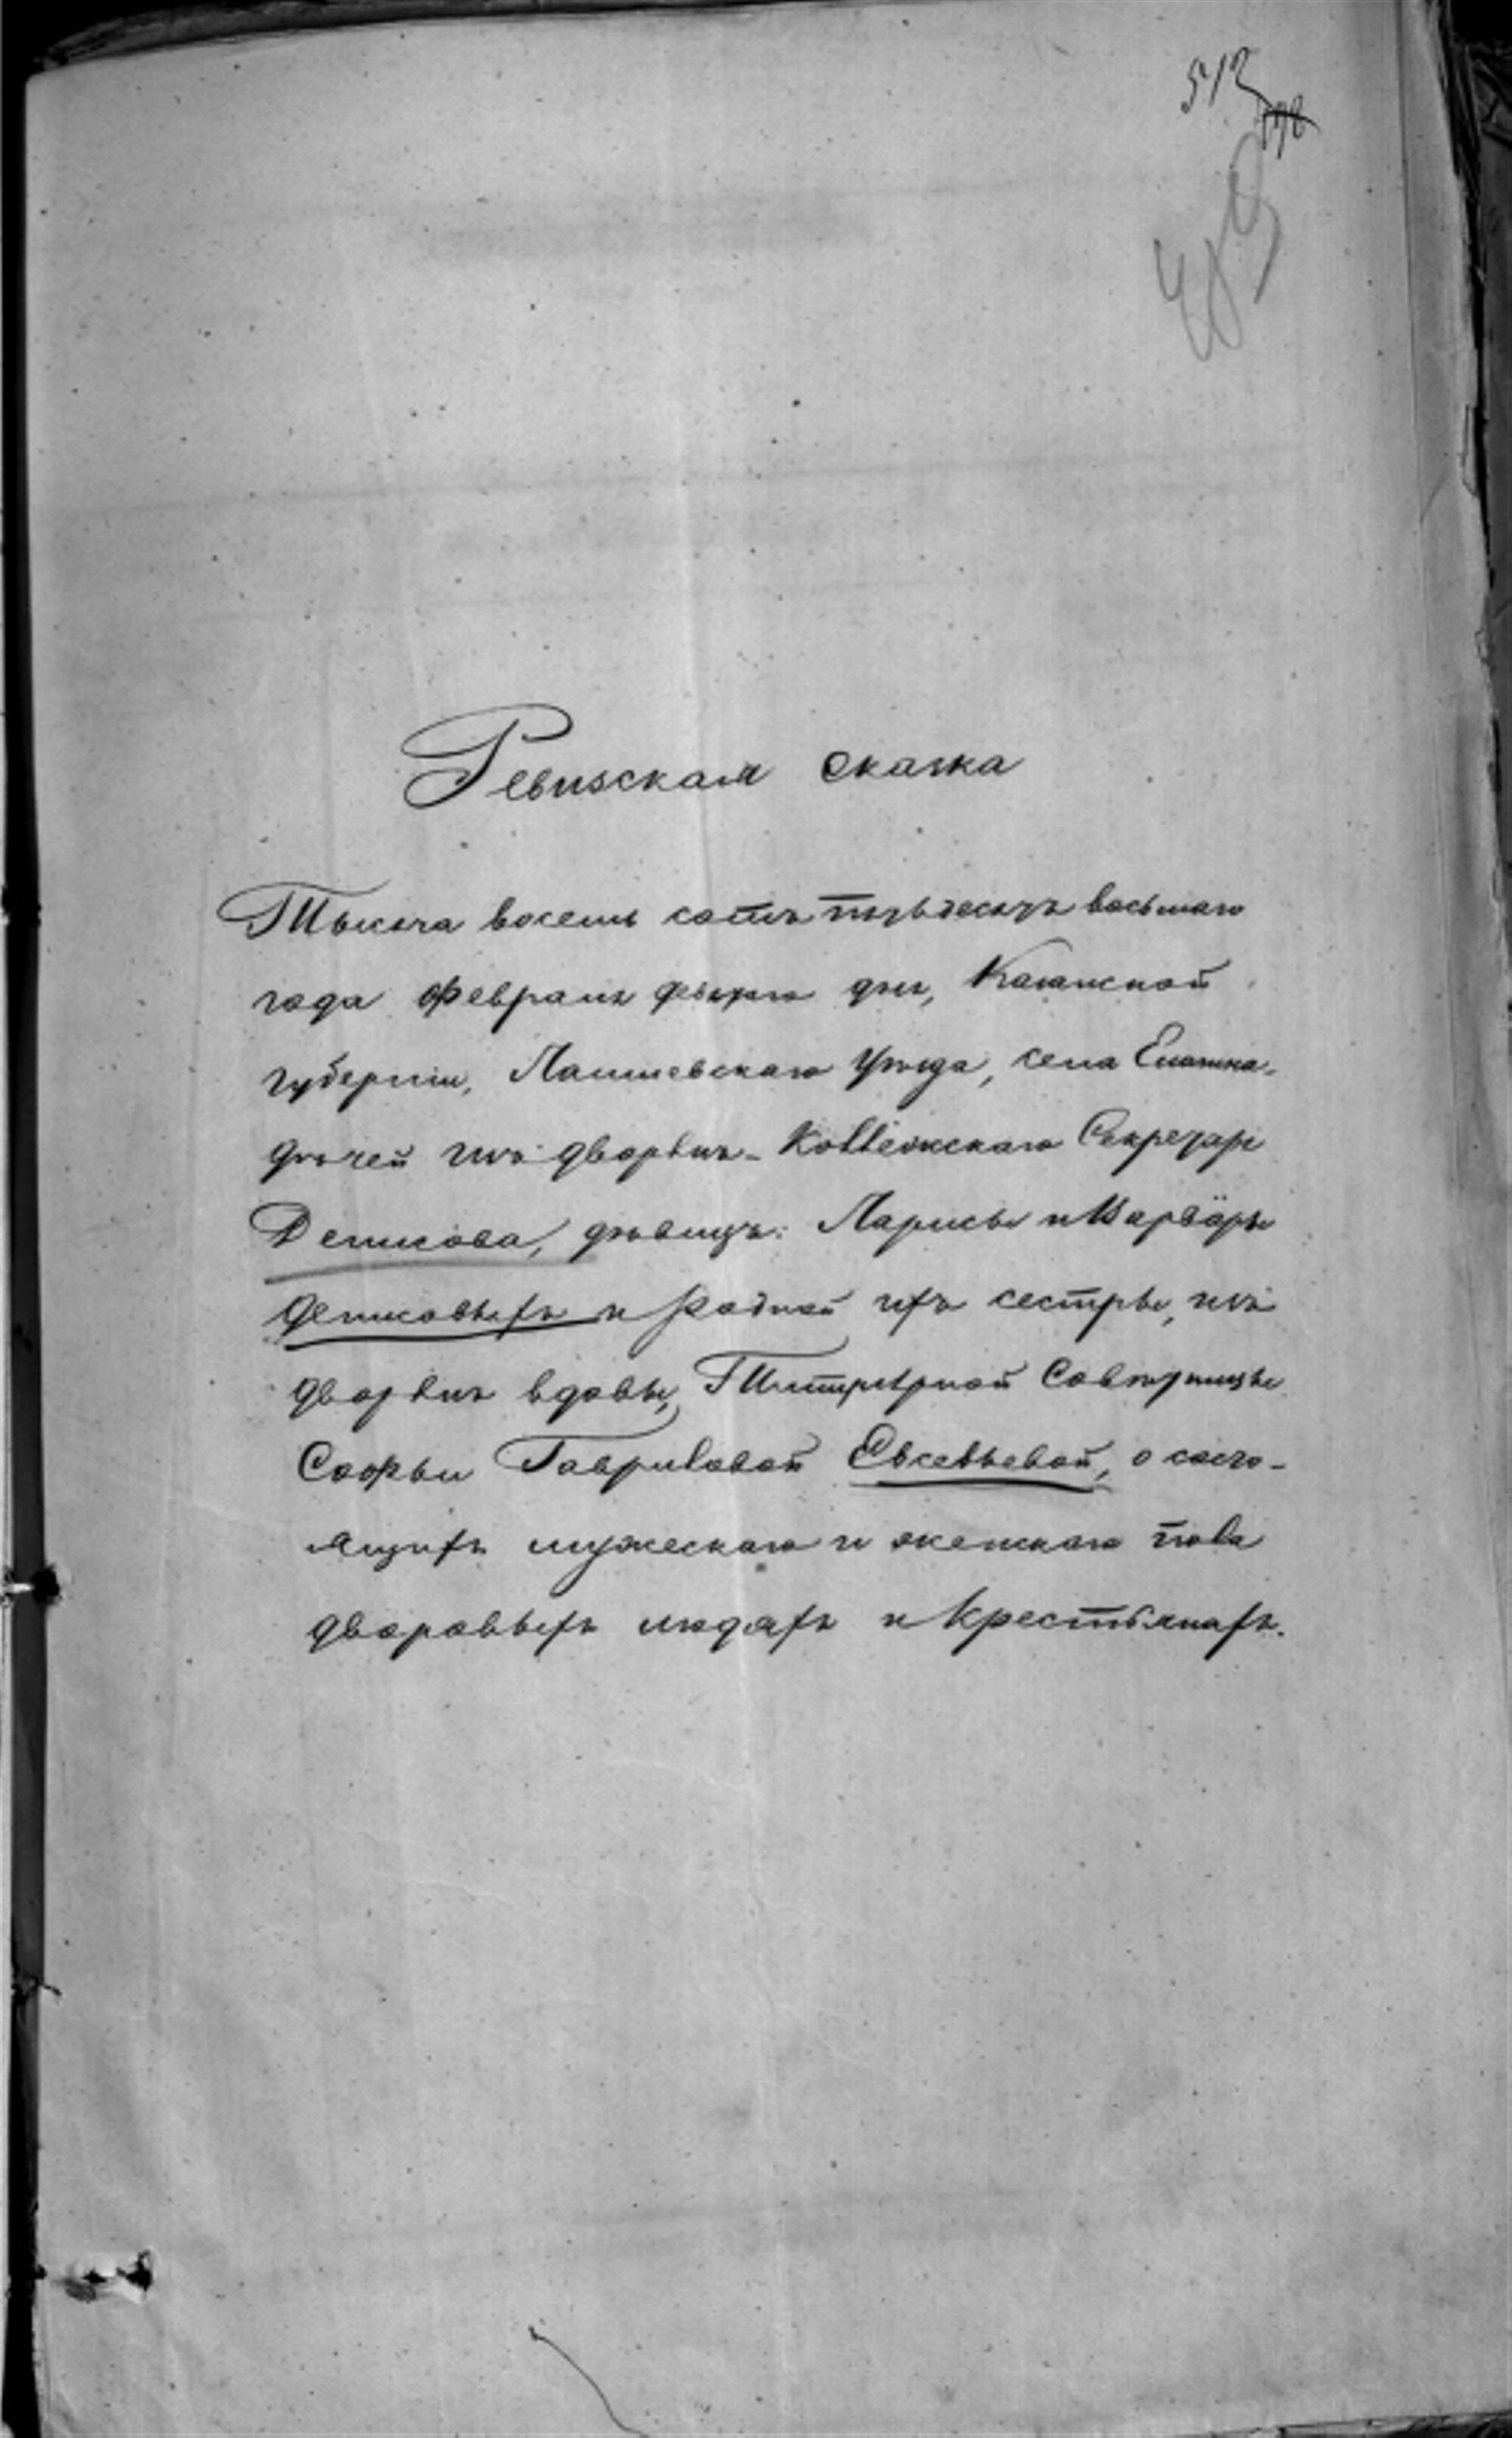 512
Ревизская сказка
Тысяча восемь сотъ пятьдесятъ восьмаго
года Февраля дня, Казанской
губерніи, Лаишевскаго Уѣзда, села
дочерей изъ дворянъ Коллежскаго Секретаря
Денисова, дѣвицъ: Ларисы и Варвары
Денисовыхъ и родной ихъ сестры, изъ
дворянъ вдовы, Титулярной Совѣтницы
Софьи Гавриловой Евсевьевой, о состо-
ящихъ мужескаго и женскаго пола
дворовыхъ людяхъ и крестьянахъ.